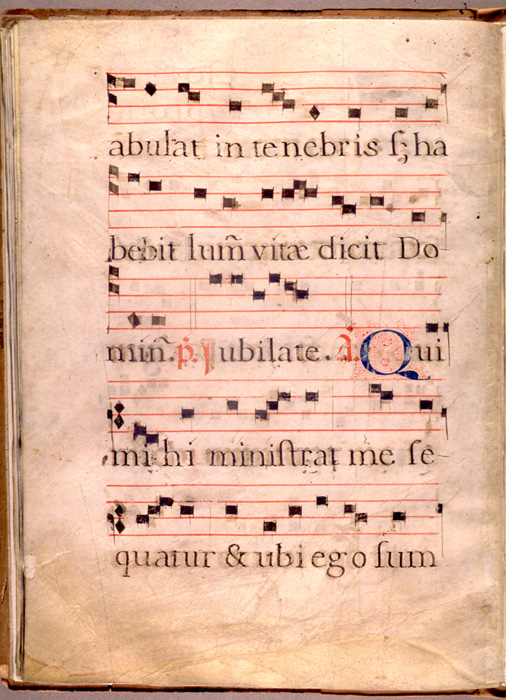 abulat in tenebris sꝫ ha
bebit lum̃ vitæ dicit Do-
min̄. p̄. Jubilate. A. Qui
mihi ministrat me se-
quatur & ubi ego sum